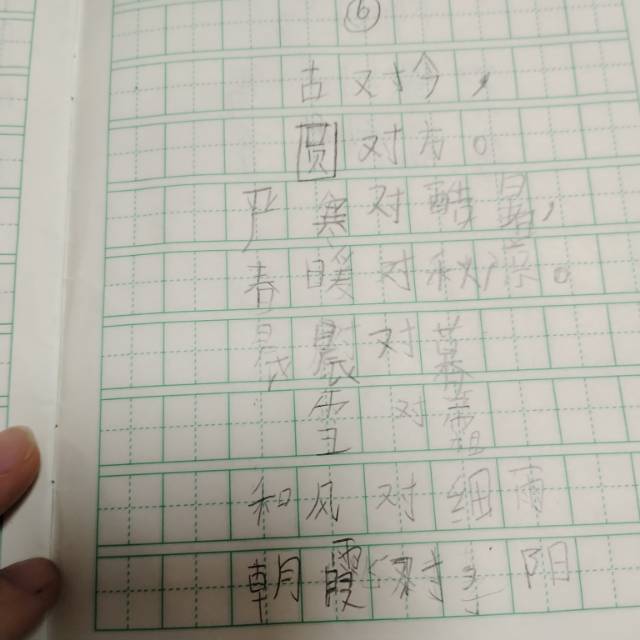 ⑥
古对今,
圆对方。
严寒对酷暑,
春暖对秋凉。
晨对暮
雪对霜
和风对细雨
朝霞对夕阳